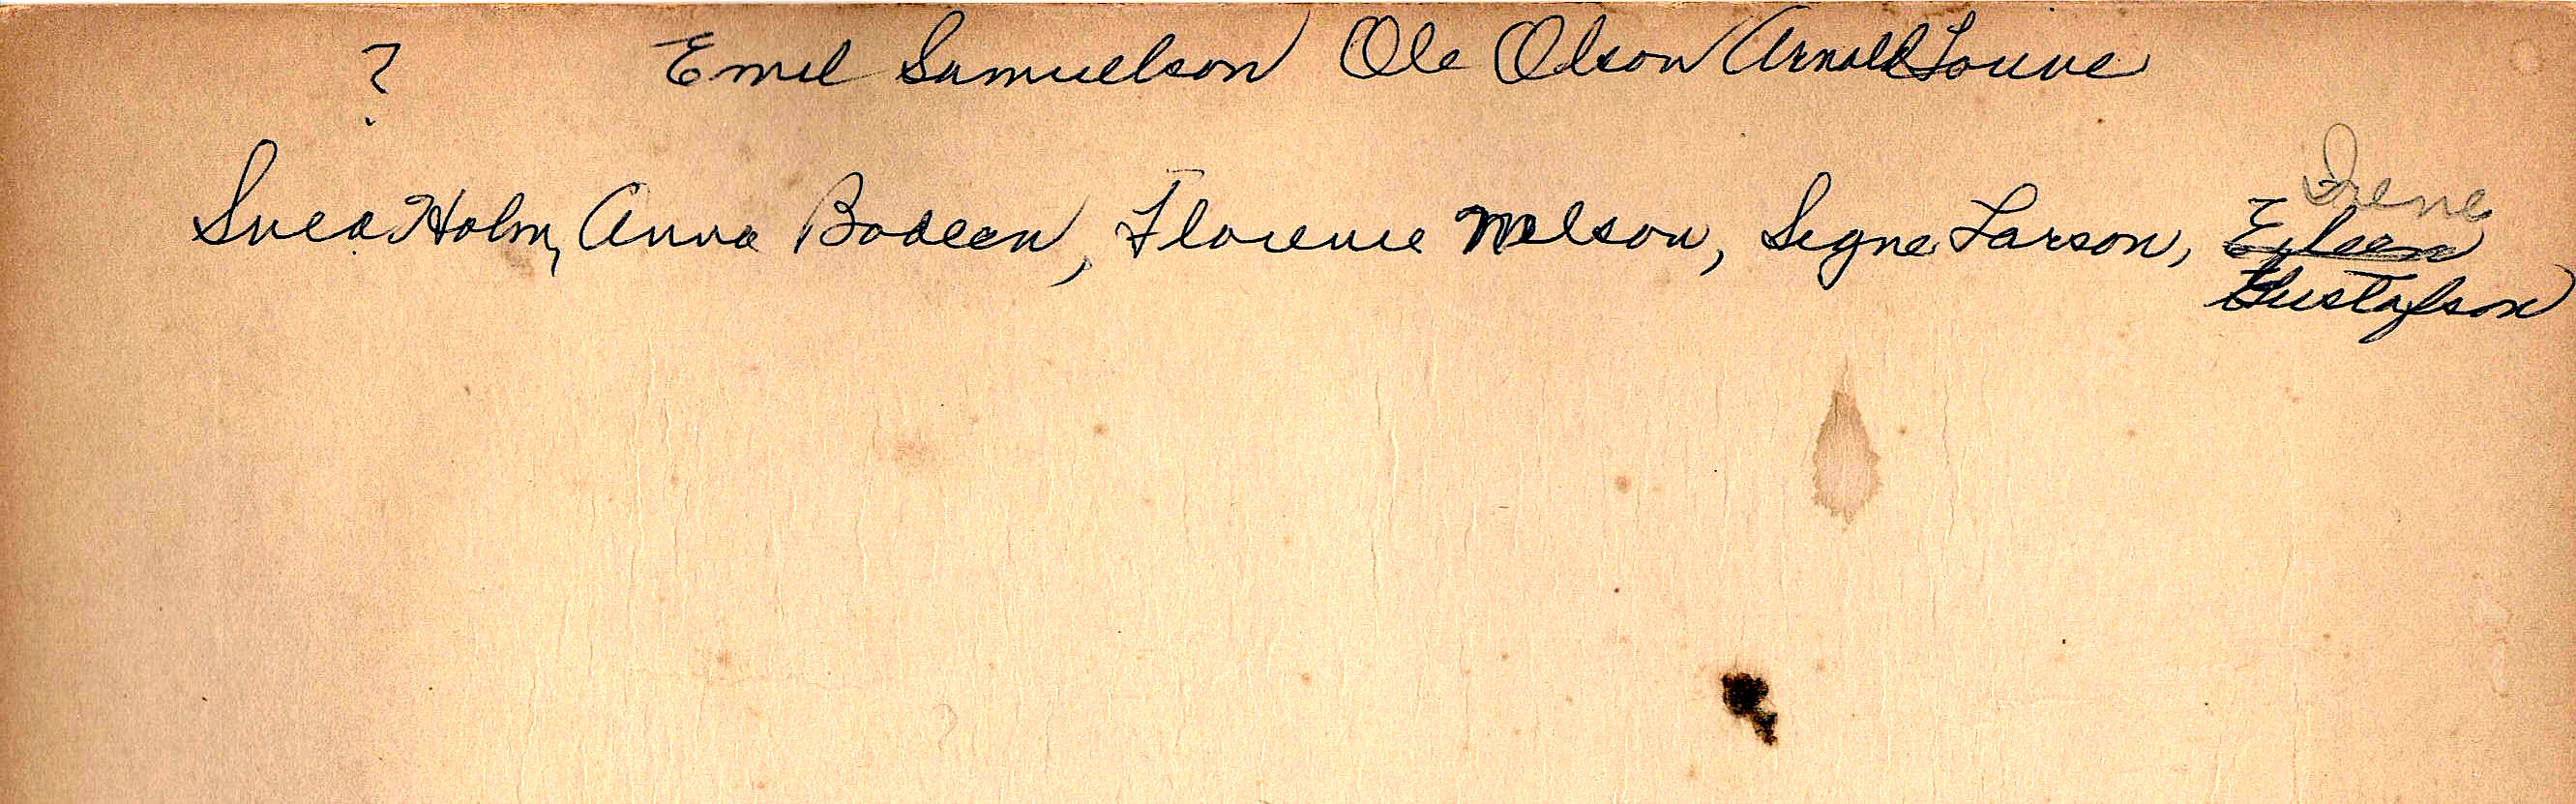 ? Emil Samuelson Ole Olson Arnold Louive
Irene
Svea Holm, Anna Bodeen, Florence Nelson, Signe Larson, Eileen
Gustafson